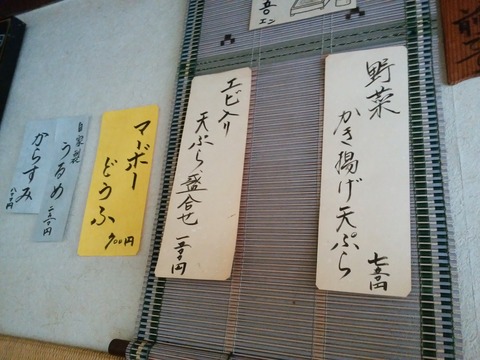 野菜
かき揚げ天ぷら
七五〇円
エビ入り
天ぷら盛合せ
一五〇〇円
マーボー
どうふ
900円
自家製
うるめ
二五〇円
からすみ
八〇〇円
エン